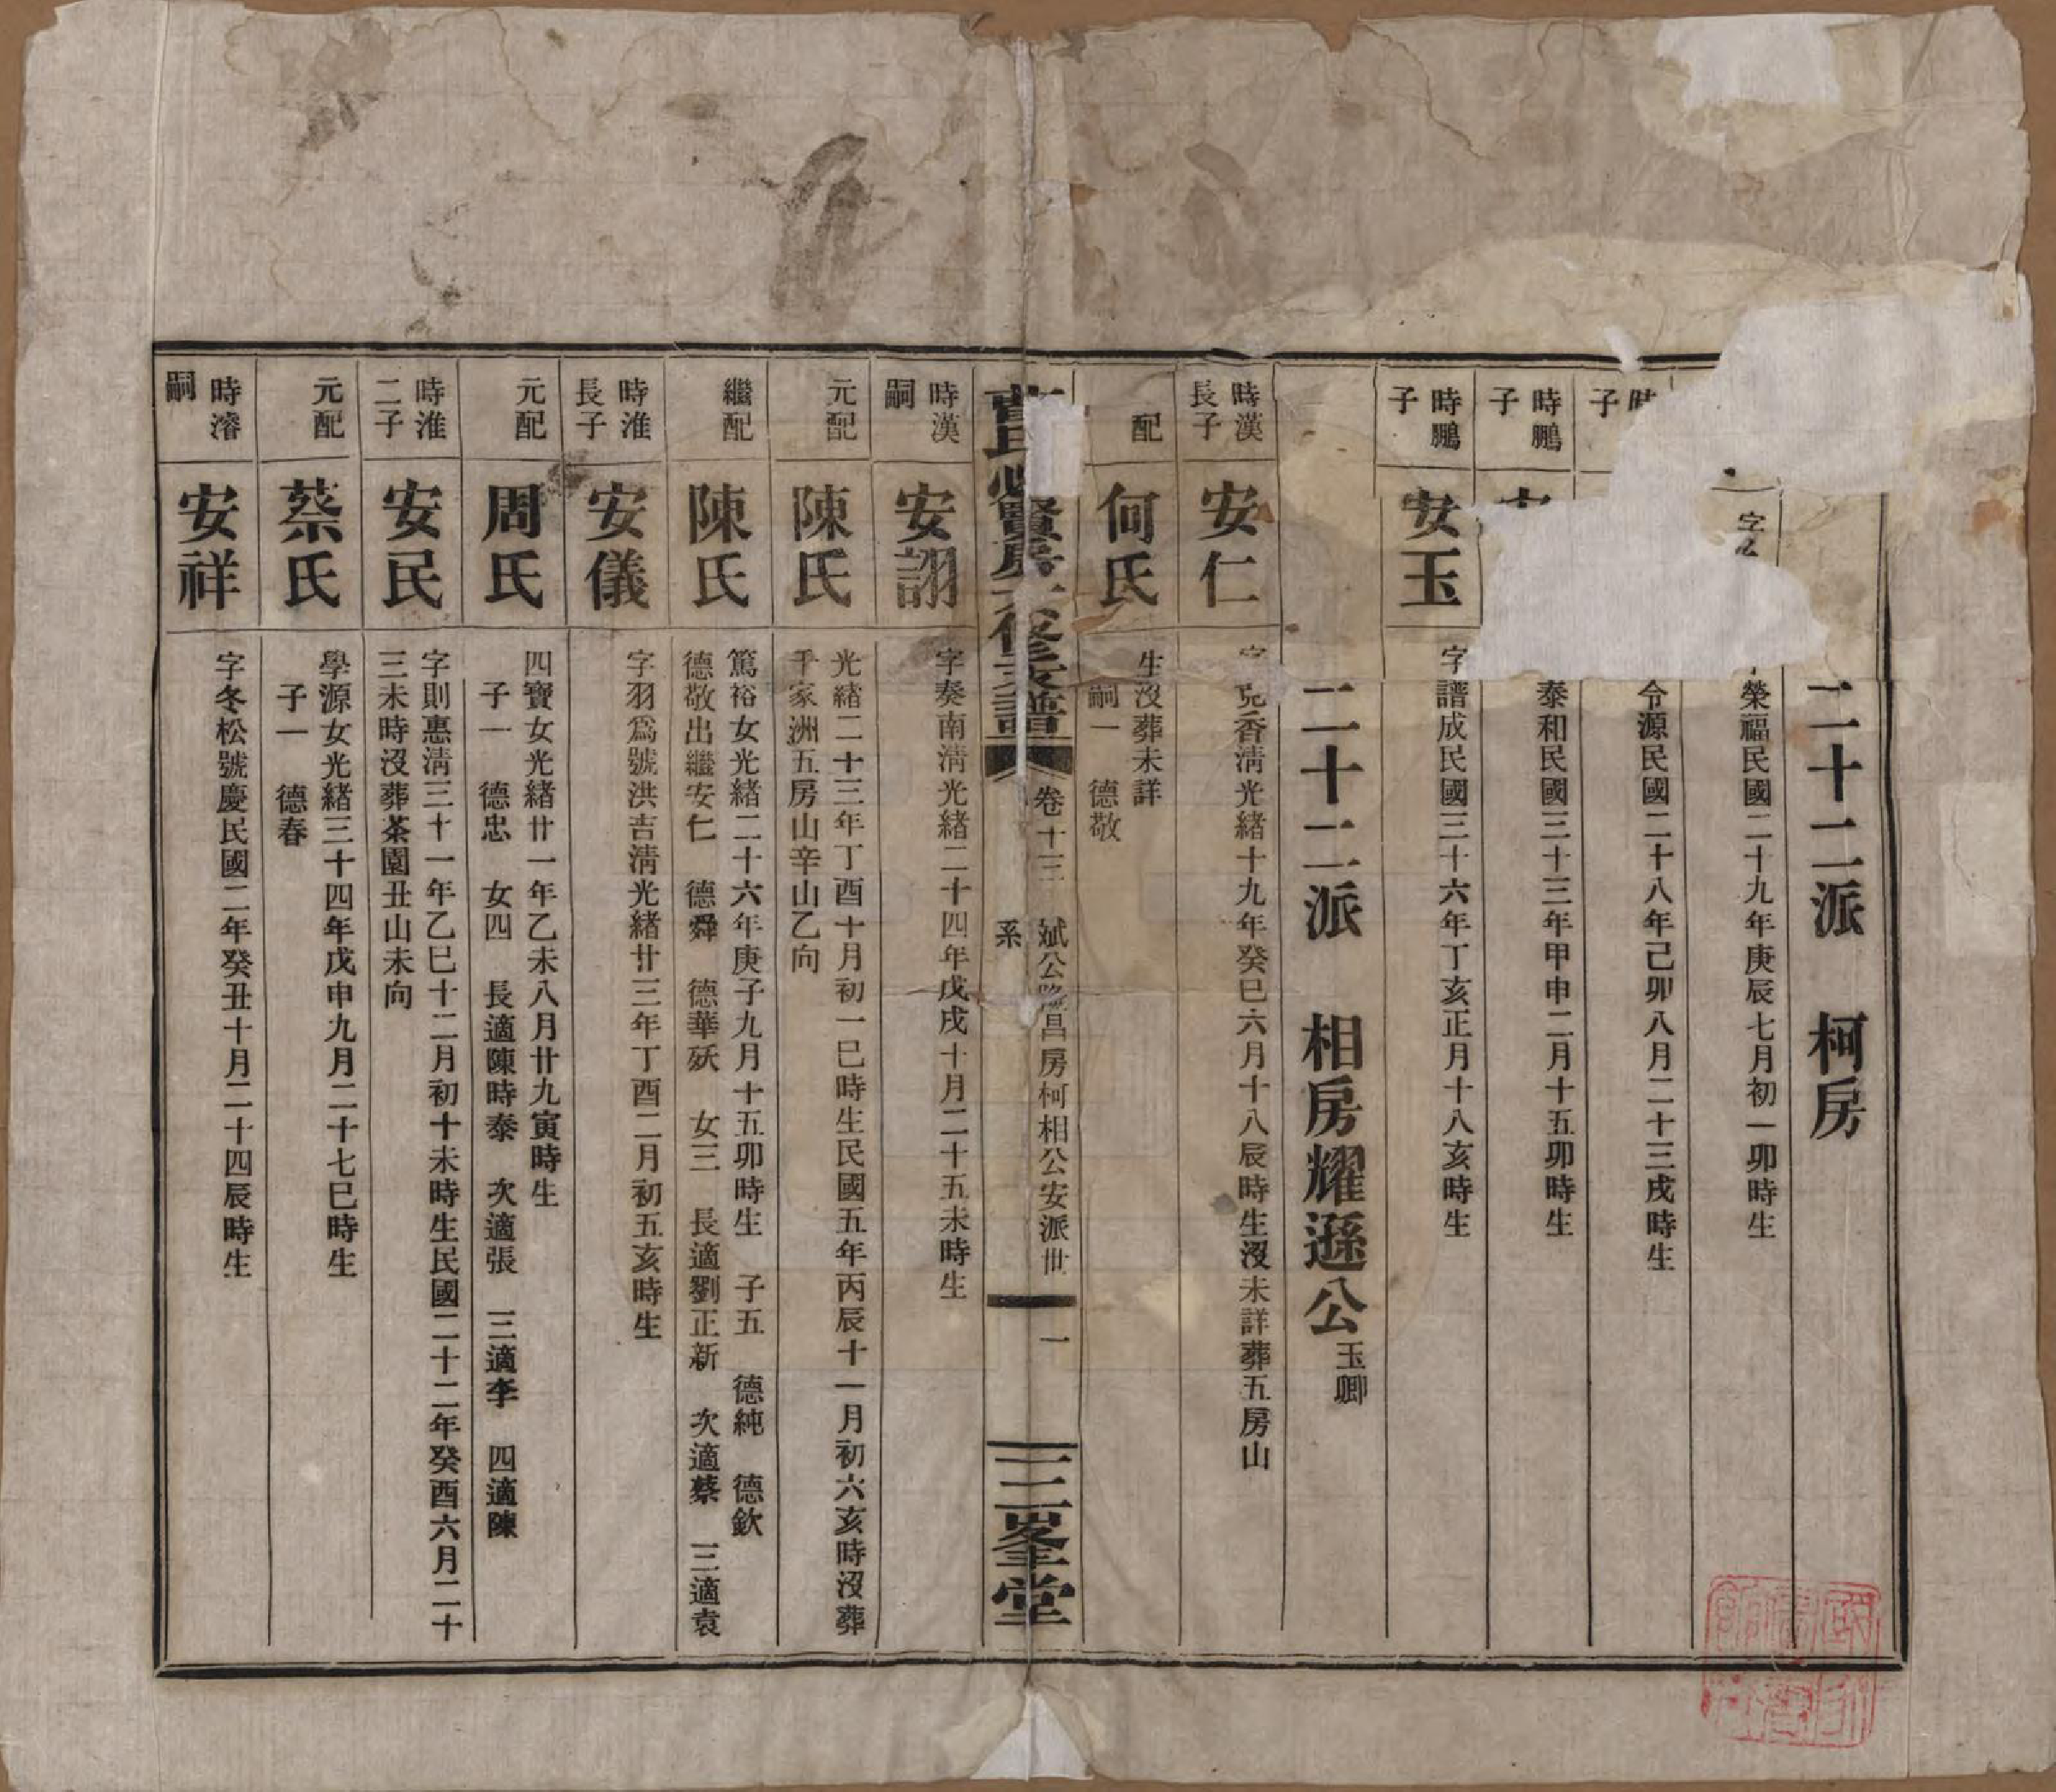 二十二派 柯房
字
榮福民國二十九年庚辰七月初一卯時生
子
令源民國二十八年己卯八月二十三戌時生
時鵬
子
泰和民國三十三年甲申二月十五卯時生
時鵬
子
安玉
字譜成民國三十六年丁亥正月十八亥時生
二十二派 相房耀遜公玉卿
時漢
長子
安仁
字克香清光緒十九年癸巳六月十八辰時生沒未詳葬五房山
配
何氏
生沒葬未詳
嗣一 德敬
賢房 修支譜
卷十三
斌公隆昌房柯相公安派世
系
一
三峯堂
時漢
嗣
安詡
字奏南清光緒二十四年戊戌十月二十五未時生
元配
陳氏
光緒二十三年丁酉十月初一巳時生民國五年丙辰十一月初六亥時沒葬
千家洲五房山辛山乙向
繼配
陳氏
篤裕女光緒二十六年庚子九月十五卯時生 子五 德純 德欽
德敬出繼安仁 德舜 德華殀 女三 長適劉正新 次適蔡 三適袁
時淮
長子
安儀
字羽爲號洪吉清光緒廿三年丁酉二月初五亥時生
元配
周氏
四寶女光緒廿一年乙未八月廿九寅時生
子一 德忠 女四 長適陳時泰 次適張 三適李 四適陳
時淮
二子
安民
字則惠清三十一年乙巳十二月初十未時生民國二十二年癸酉六月二十
三未時沒葬茶園丑山未向
元配
蔡氏
學源女光緒三十四年戊申九月二十七巳時生
子一 德春
時濬
嗣
安祥
字冬松號慶民國二年癸丑十月二十四辰時生